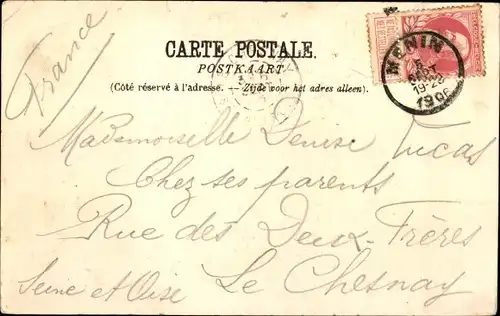 France
CARTE POSTALE.
POSTKAART.
(Côté réservé à l'adresse. — Zijde voor het adres alleen).
MENIN
19-22
190
Mademoiselle Denise Lucas
Chez ses parents
Rue des Deux-Frères
Le Chesnay
Seine et Oise